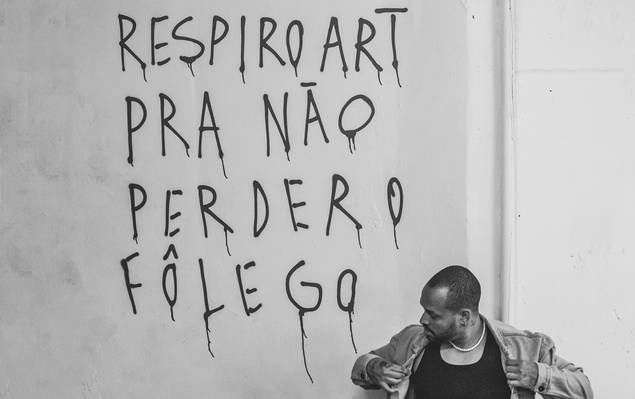 RESPIRO ART
PRA NÃO
PERDER O
FÔLEGO